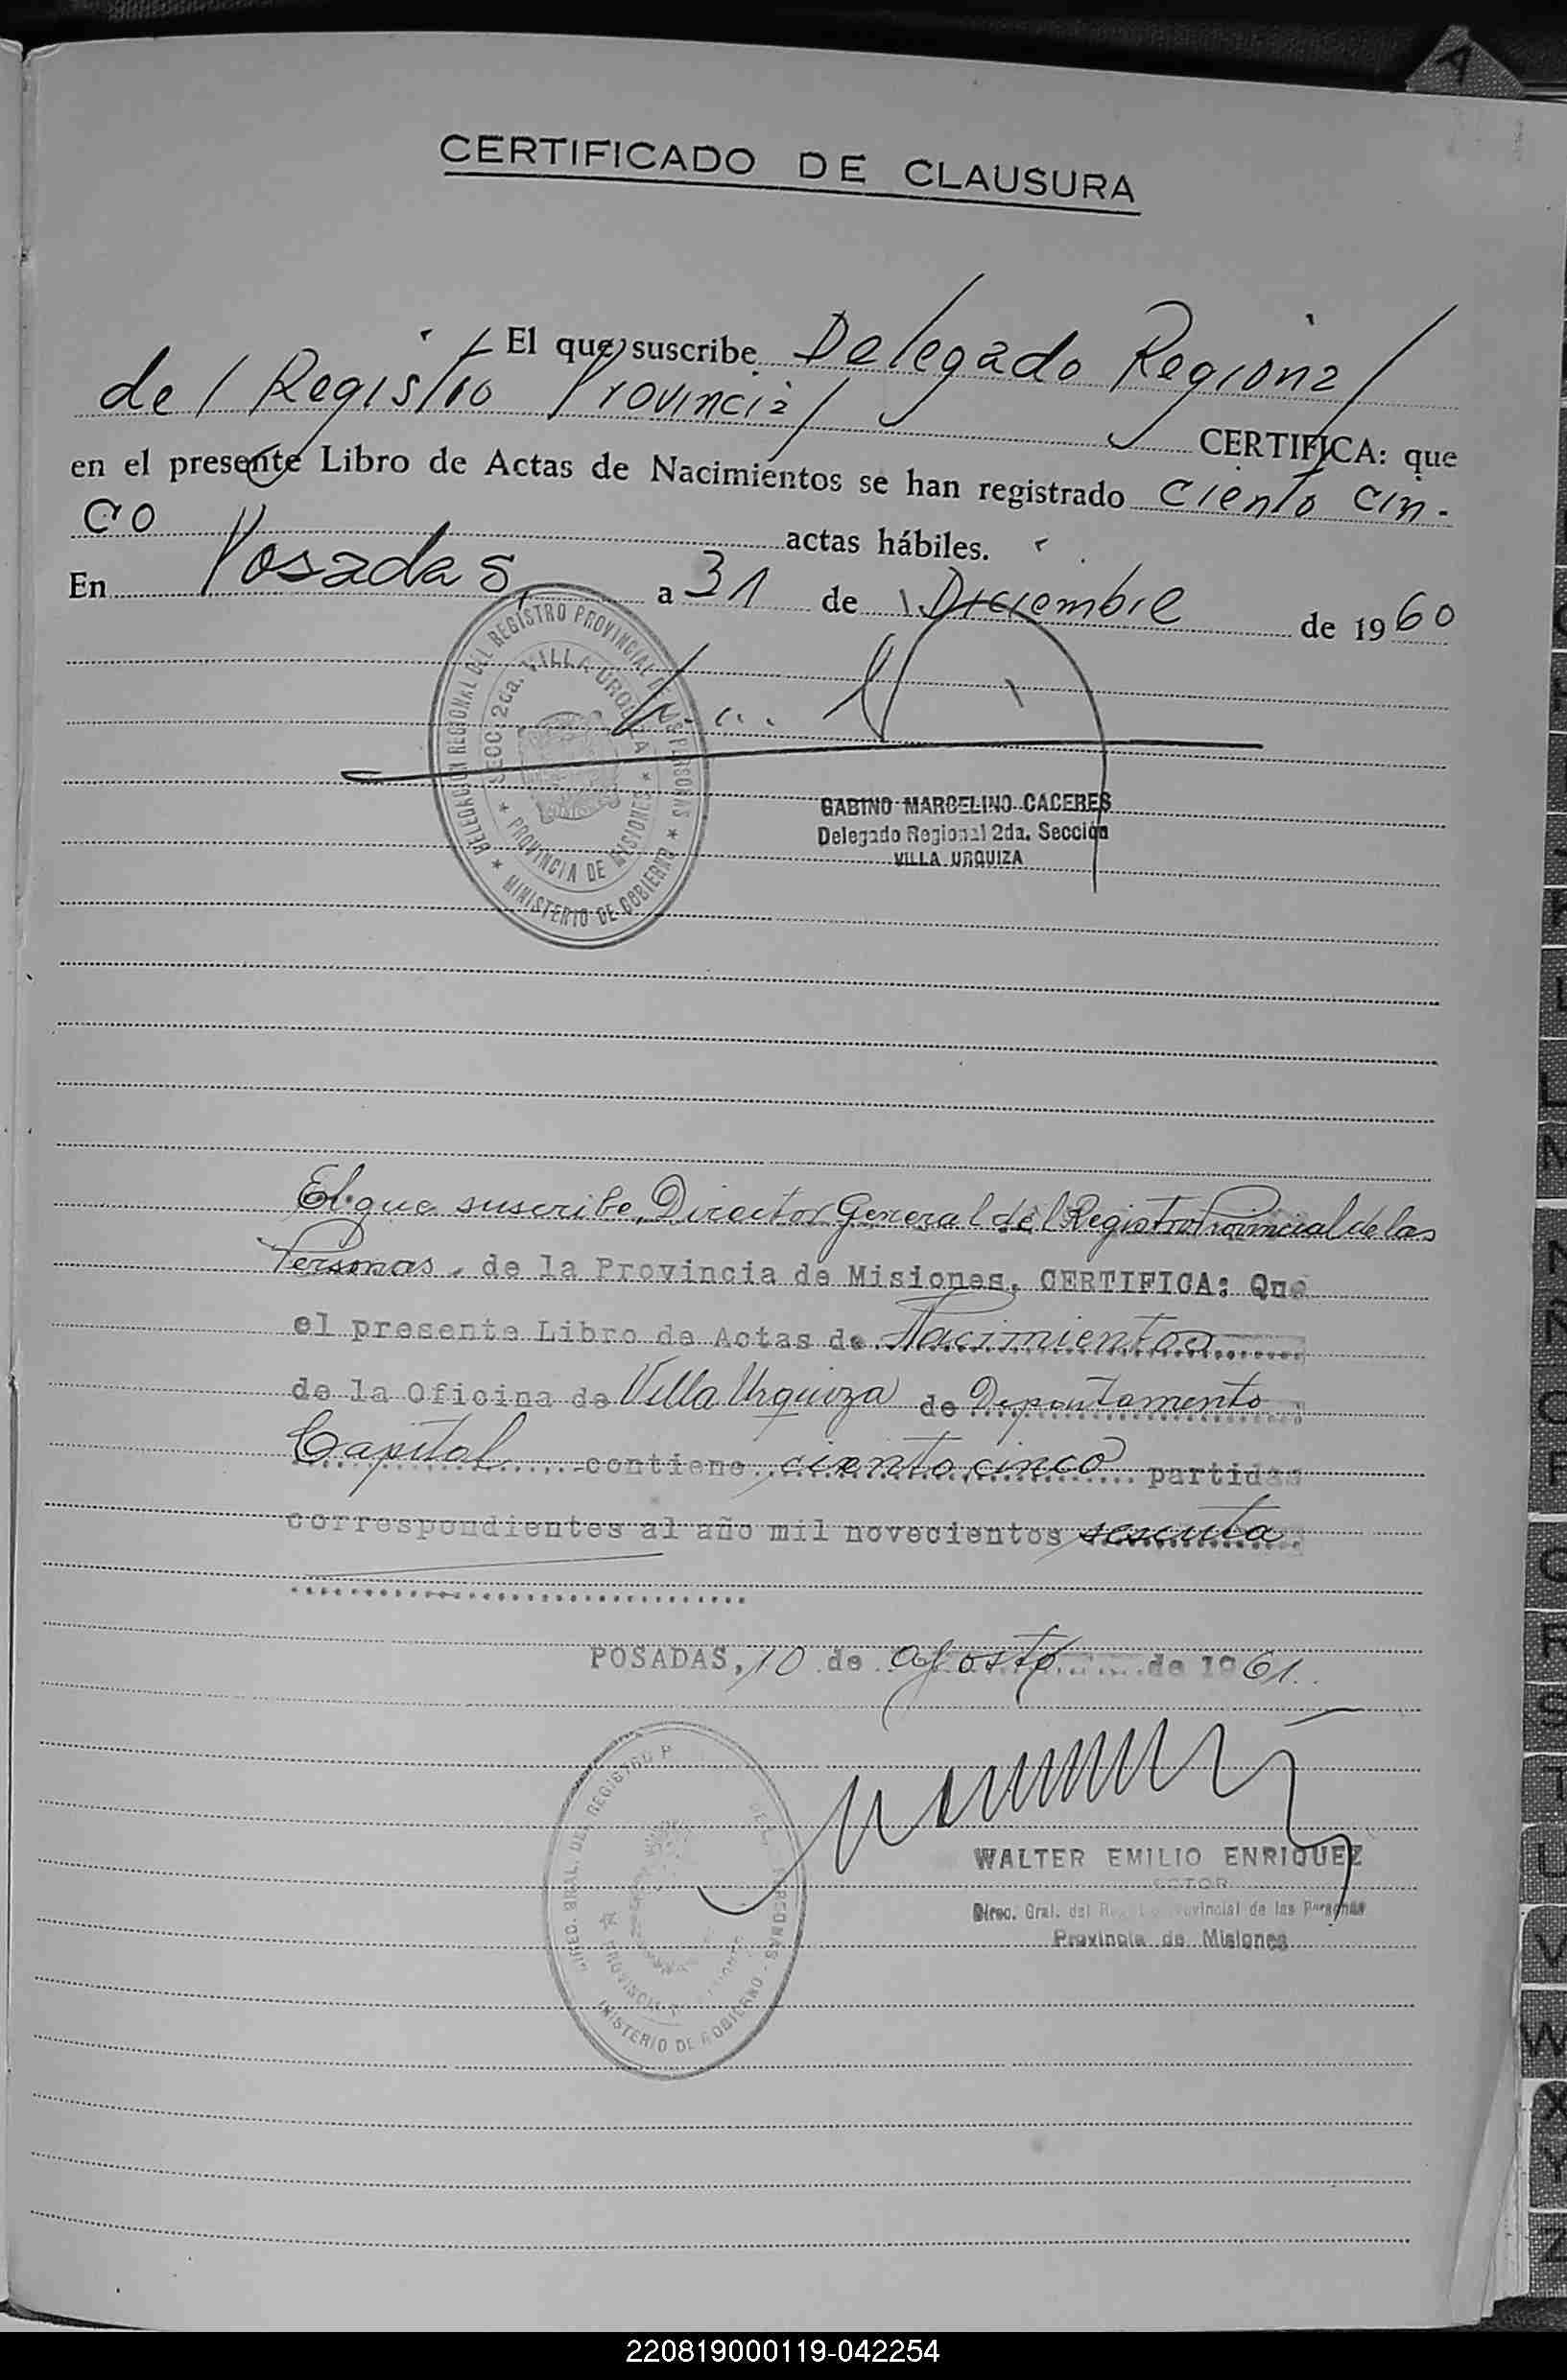 A
CERTIFICADO DE CLAUSURA
El que suscribe Delegado Regional
del Registro Provincial CERTIFICA: que
en el presente Libro de Actas de Nacimientos se han registrado Ciento Cin-
co actas hábiles.
En Posadas, a 31 de Diciembre de 1960
DELEGACION REGIONAL DEL REGISTRO PROVINCIAL DE LAS PERSONAS
SECC. 2da. VILLA URQUIZA
PROVINCIA DE MISIONES
MINISTERIO DE GOBIERNO
GABINO MARCELINO CACERES
Delegado Regional 2da. Sección
VILLA URQUIZA
El que suscribe, Director General del Registro Provincial de las
Personas, de la Provincia de Misiones, CERTIFICA: Que
el presente Libro de Actas de Nacimientos
de la Oficina de Villa Urquiza de Departamento
Capital contiene ciento cinco partidas
correspondientes al año mil novecientos sesenta
POSADAS, 10 de agosto de 1961.
WALTER EMILIO ENRIQUEZ
Direc. Gral. del Provincial de las Personas
Provincia de Misiones
220819000119-042254